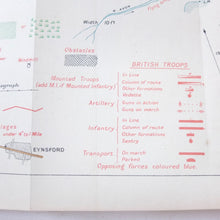 Width 10 ft
Flying
Windmill
Obstacles
BRITISH TROOPS
Mounted Troops
(add M.I. if Mounted Infantry)
In Line
Column of route
Other formations
Vedette
Artillery
Guns in action
Guns on march
Infantry
In Line
Column of route
Other formations
Sentry
Transport
On march
Parked
Opposing forces coloured blue.
under ¼ to 1 Mile
EYNSFORD